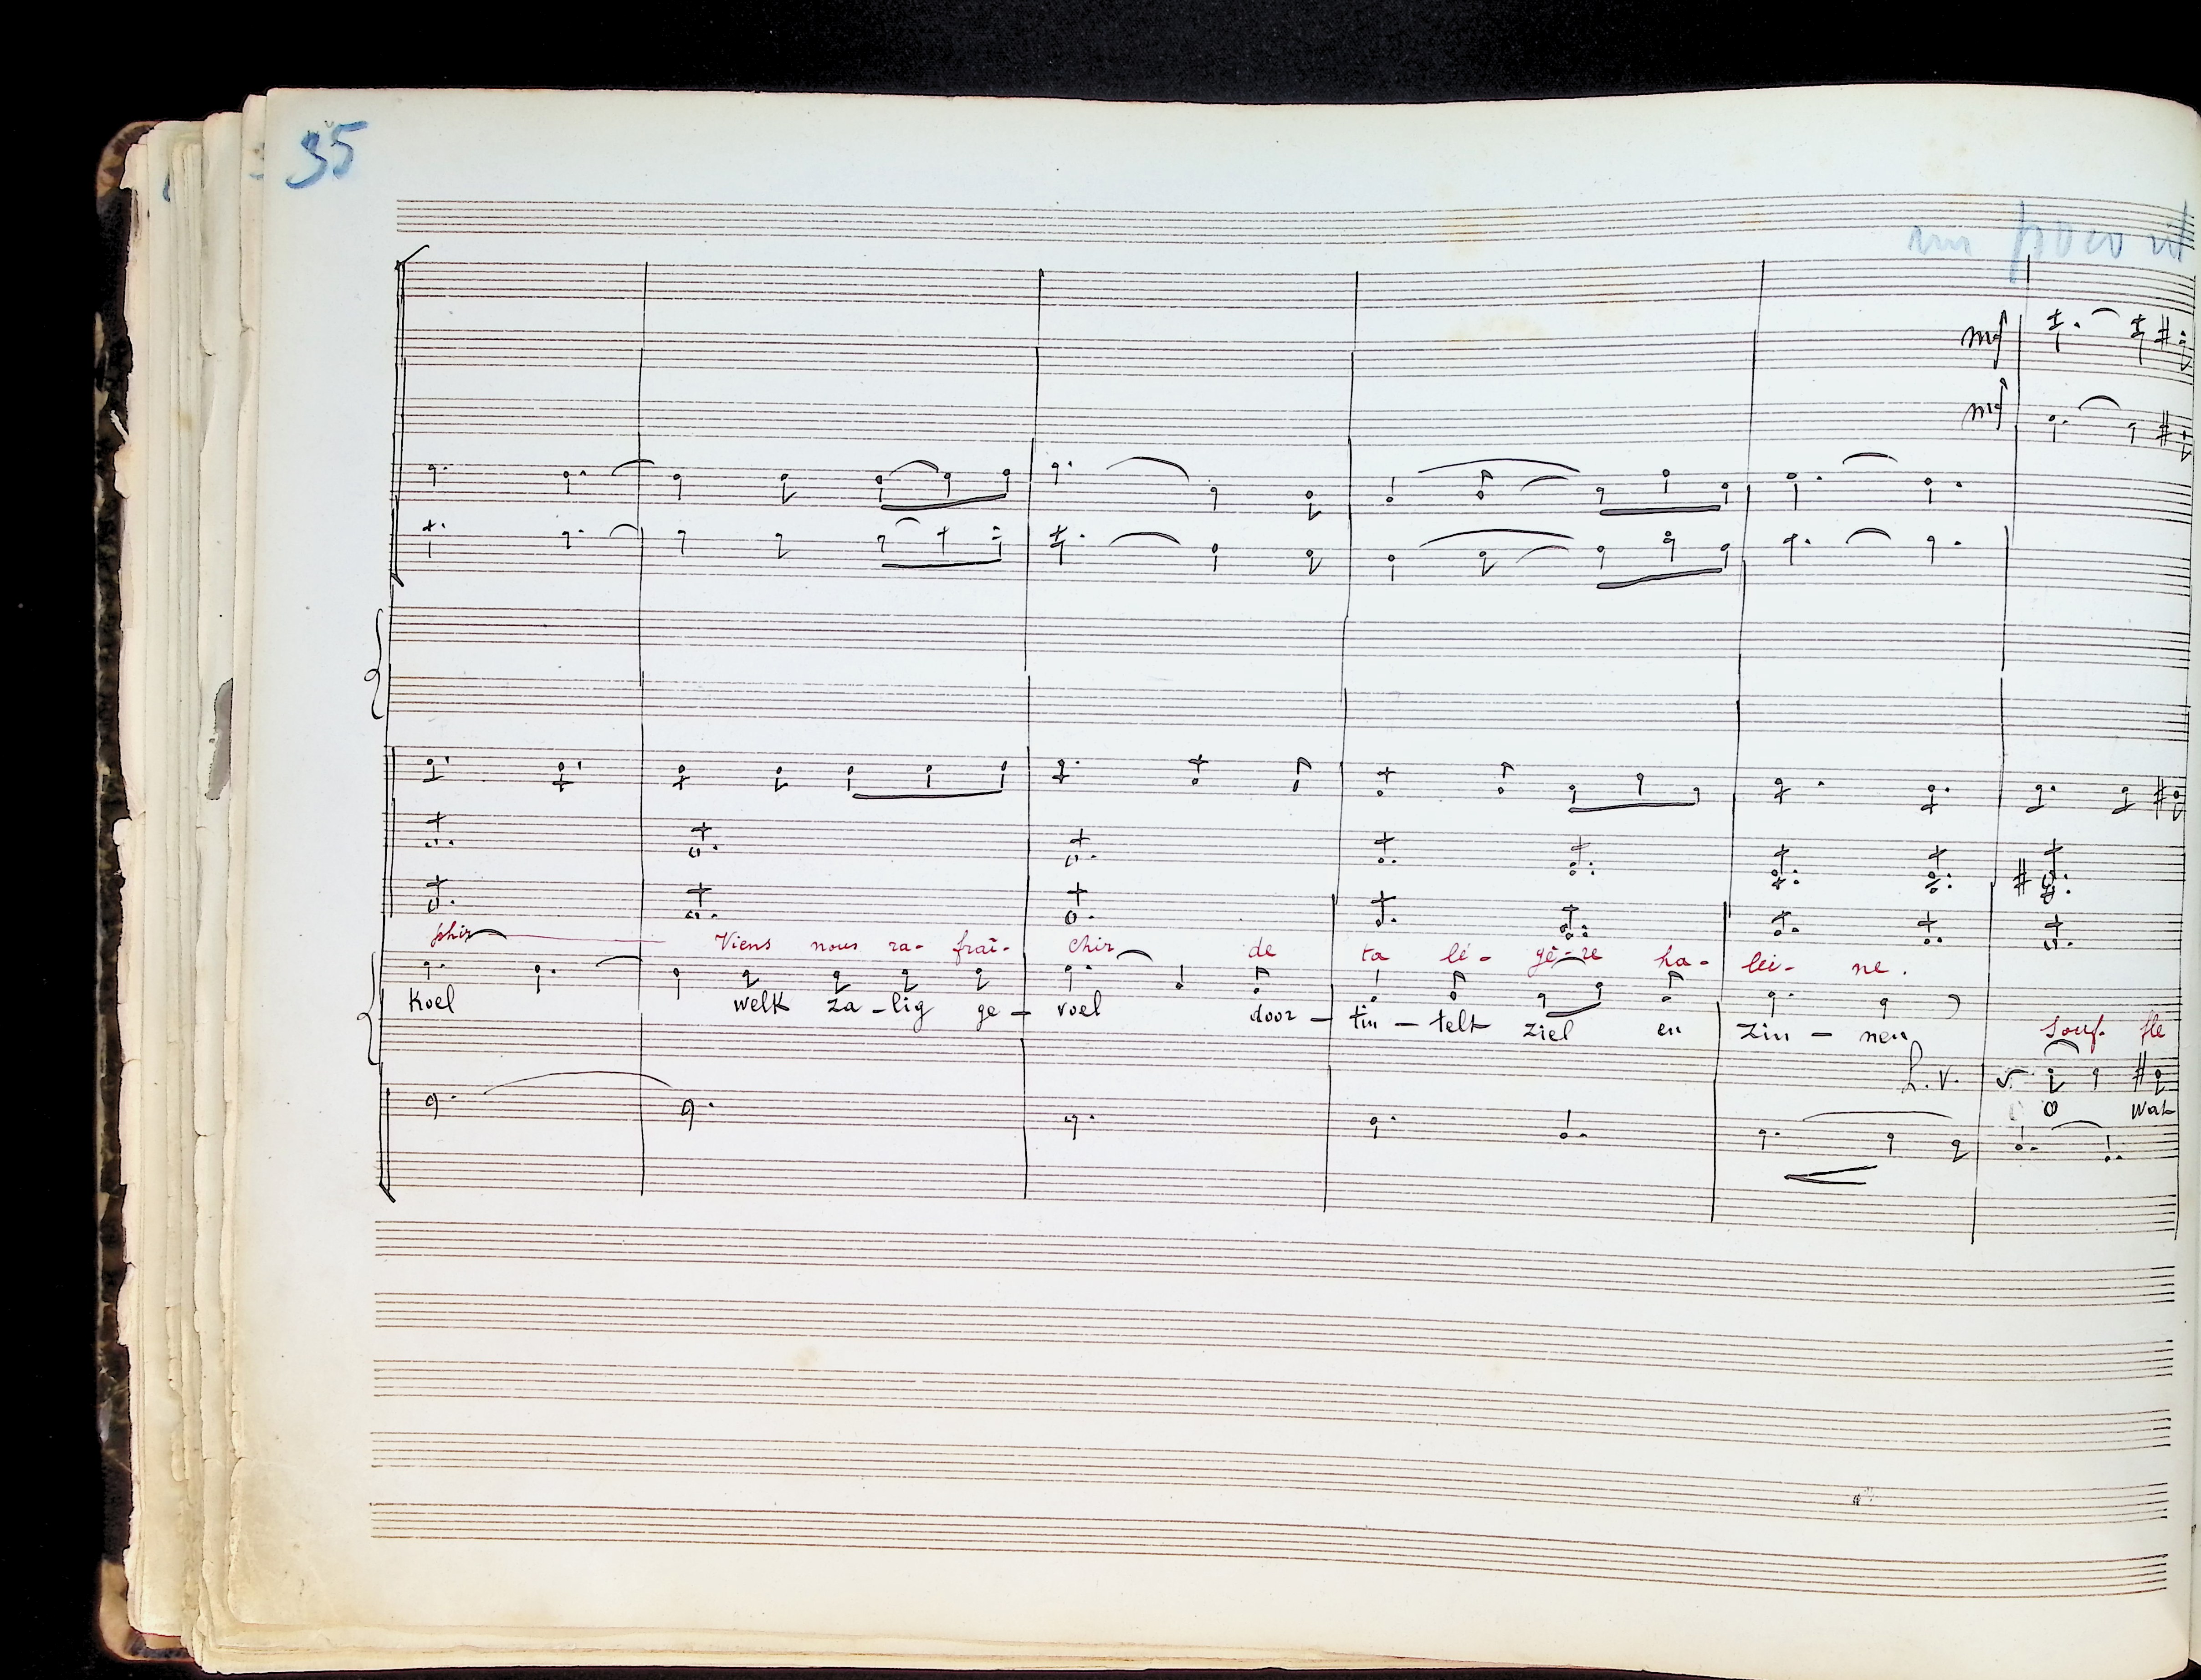 35
un poco rit
mf
mf
phir Viens nous ra- fraî- chir de ta lé- gè-re ha- lei- ne.
Koel welk za-lig ge- voel door- tin-telt ziel en zin-nen
souf- fle
h.v.
O wat